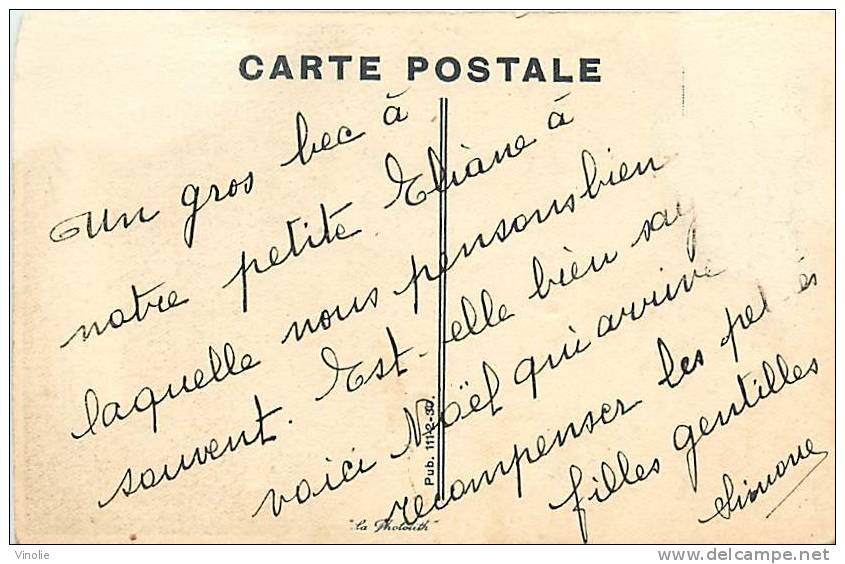 CARTE POSTALE
Un gros bec à
notre petite Eliane à
laquelle nous pensons bien
souvent. Est-elle bien
voici Noël qui arrive
recompenser les
filles gentilles
Simone
Pub. 111-2-30.
"La Photolith"
Vinolie
http://www.delcampe.net